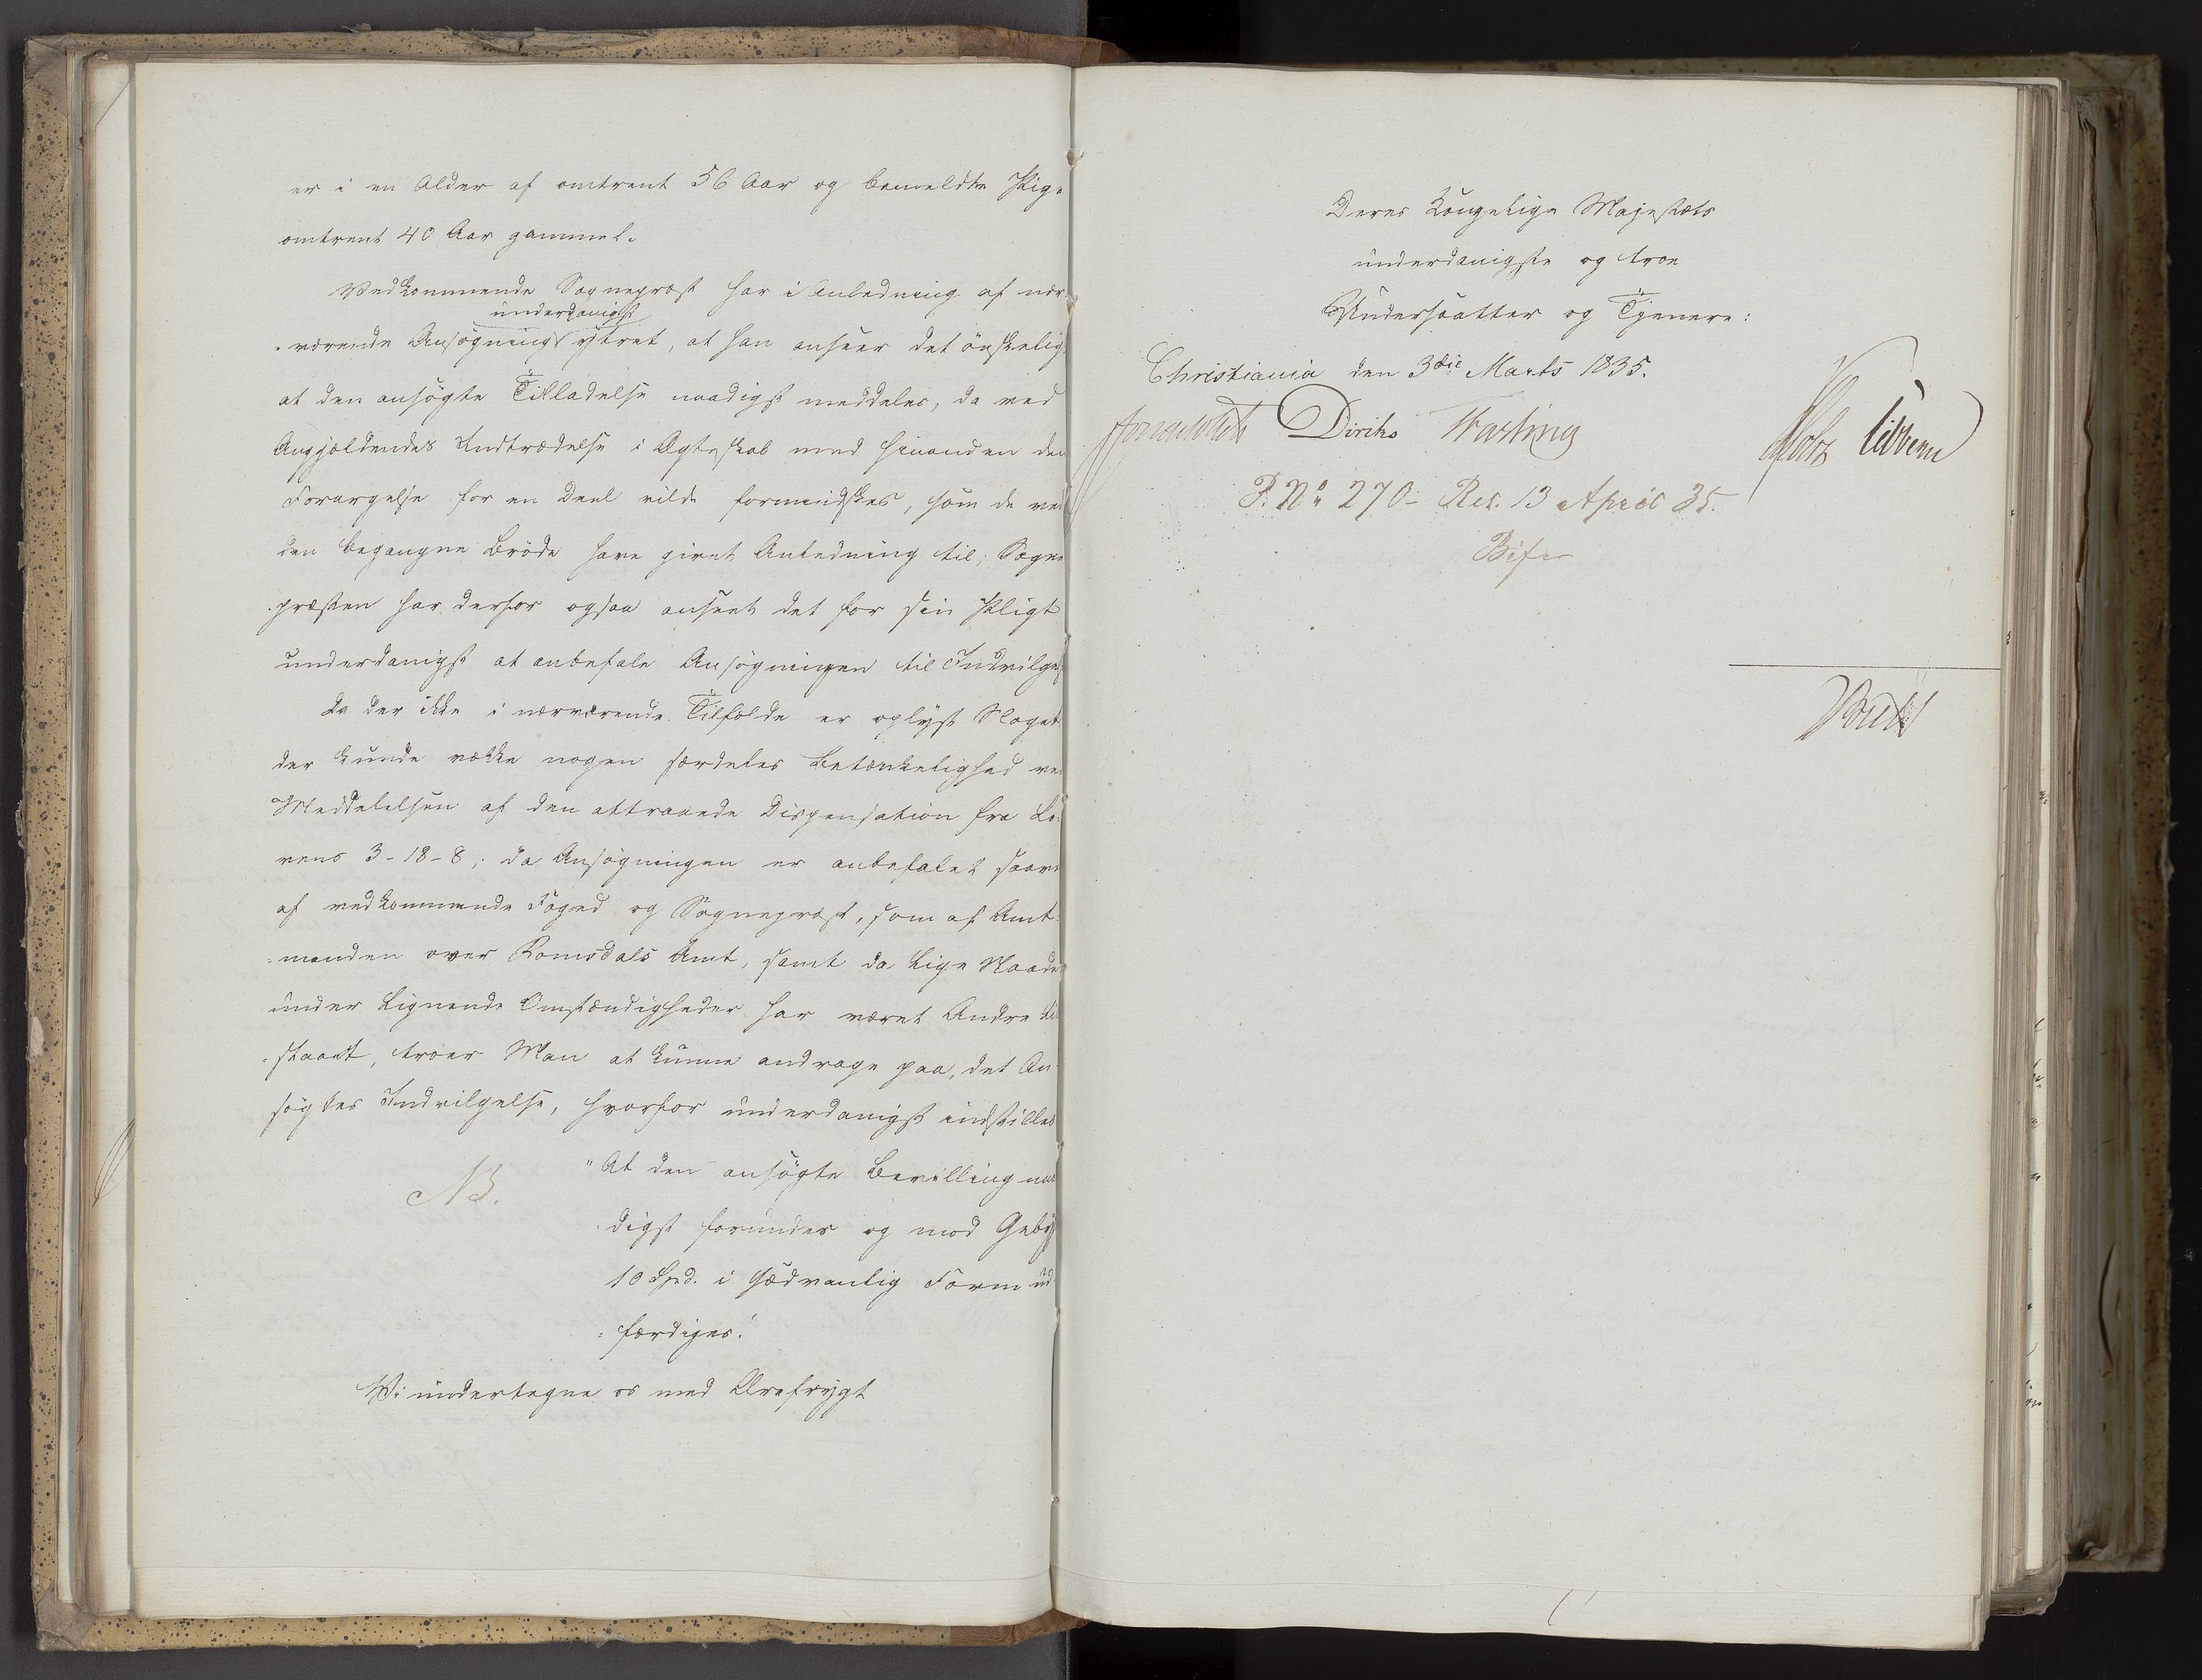 er i en Alder af omtrent 56 Aar og bemeldte Pige
omtrent 40 Aar gammel.
Vedkommende Sognepræst har i Anledning af nær-
underdanigst
værende Ansøgning ytret, at han anseer det ønskelig
at den ansøgte Tilladelse naadigst meddeles, da ved
Angjældendes Indtrædelse i Ægteskab med hinanden den
Forargelse for en Deel vilde formindskes, som de ved
den begangne Brøde have givet Anledning til; Sogne
præsten har derfor ogsaa anseet det for sin Pligt
underdanigst at anbefale Ansøgningen til Indvilgel
Da der ikke i nærværende Tilfælde er oplyst Noget
der kunde vække nogen særdeles Betænkelighed ved
Meddelelsen af den attraaede Dispensation fra Lo-
vens 3-18-8; da Ansøgningen er anbefalet saavel
af vedkommende Foged og Sognepræst, som af Amt-
manden over Romsdals Amt, samt da lige Naade
under lignende Omstændigheder har været Andre til
staaet, troer Man at kunne andrage paa, det An
søgtes Indvilgelse, hvorfor underdanigst indstilles
NB.
"At den ansøgte Bevilling naa
digst forundes og mod Geby
10 Spd. i sædvanlig Form ud
færdiges."
Vi undertegne os med Ærefrygt
Deres Kongelige Majestæts
underdanigste og troe
Undersaatter og Tjenere:
Christiania den 3die Marts 1835.
Diriks Fasting
Motz Vibbern
P. No 270- Res. 13 April 35.
Bif.